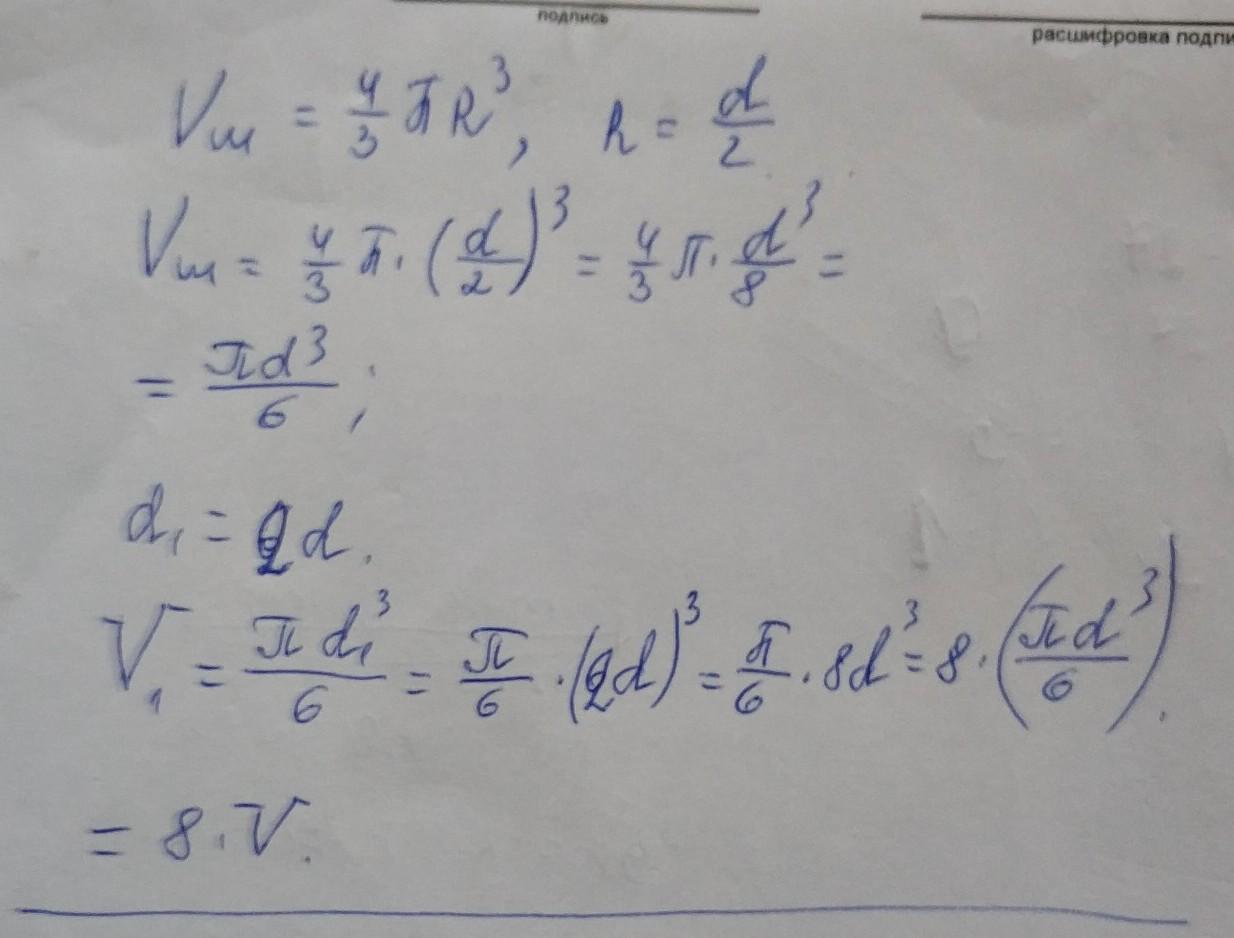 подпись
расшифровка подпи
Vш = 4/3 πR³, R = d/2
Vш = 4/3 π · (d/2)³ = 4/3 π · d³/8 =
= πd³/6 ;
d₁ = 2d.
V₁ = πd₁³/6 = π/6 · (2d)³ = π/6 · 8d³ = 8 · (πd³/6).
= 8 · V.